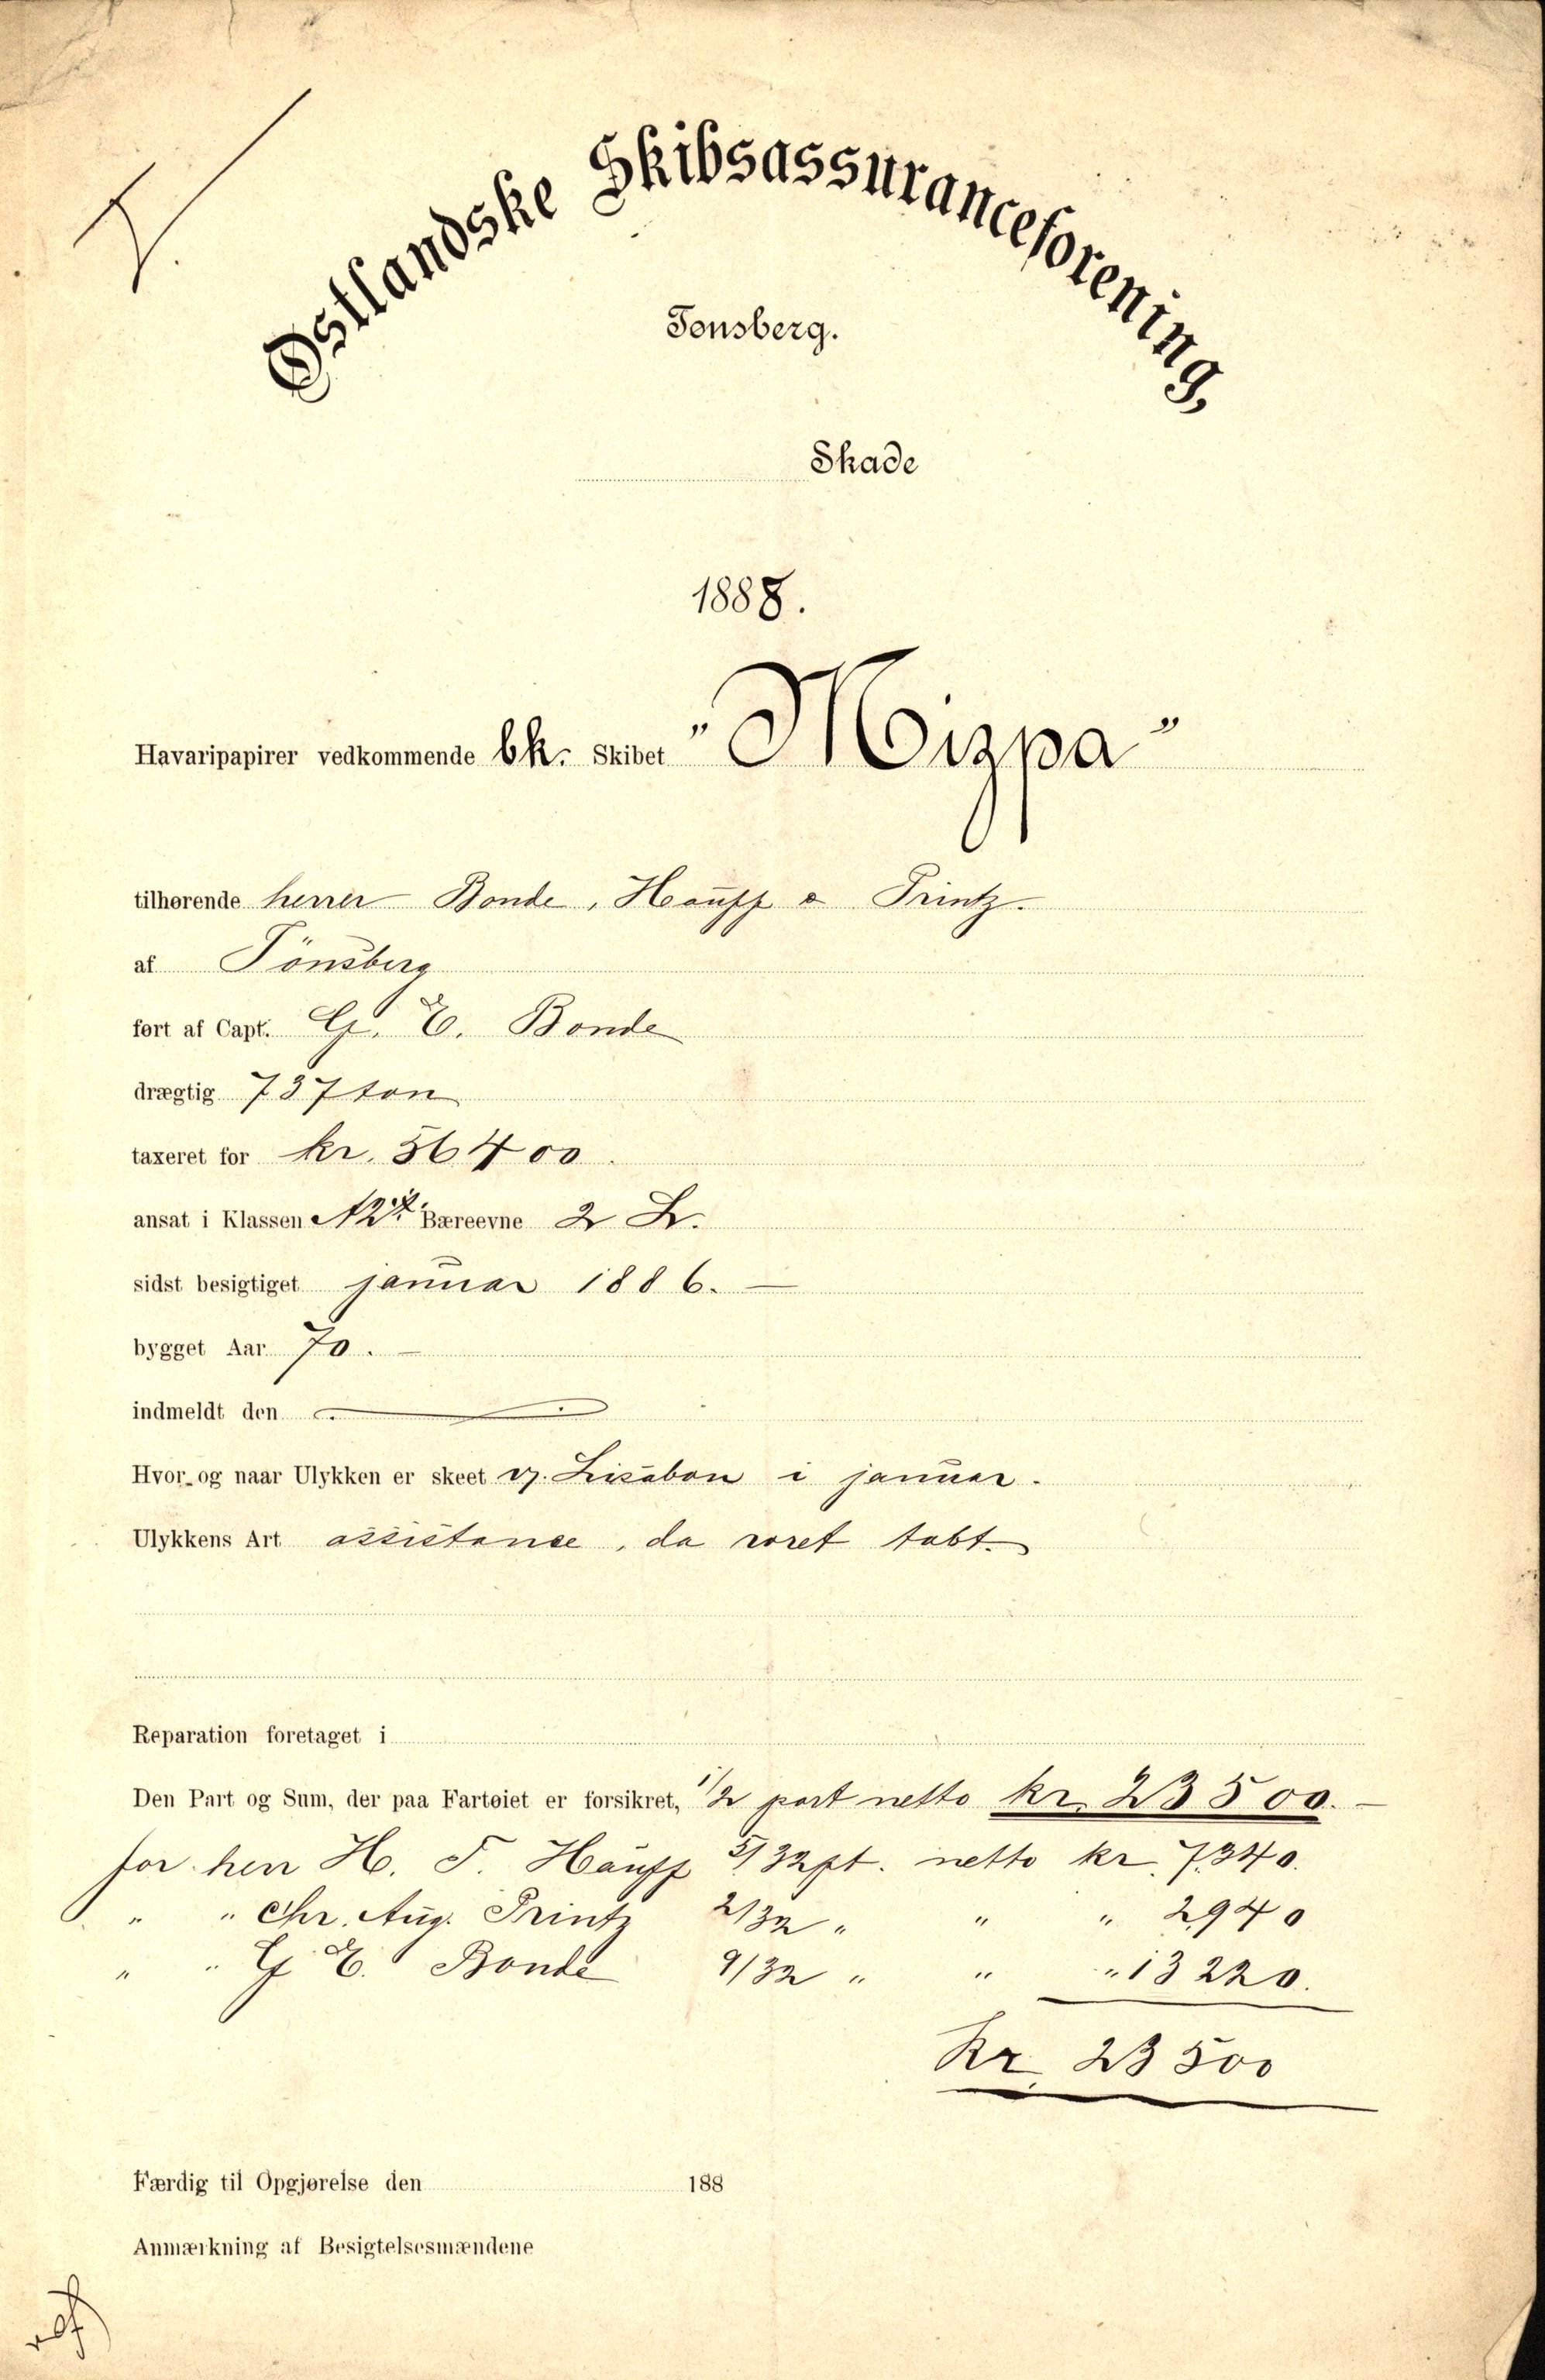 Østlandske Skibsassuranceforening,
Tønsberg.
Skade
1888.
Havaripapirer vedkommende bk. Skibet "Mizpa"
tilhørende herrer Bonde, Hauff & Printz.
af Tönsberg
ført af Capt. G. E. Bonde
drægtig 737 ton
taxeret for kr. 56400.
ansat i Klassen Bæreevne 2 L.
sidst besigtiget januar 1886. —
bygget Aar 70. —
indmeldt den
Hvor og naar Ulykken er skeet v. Lissabon i januar.
Ulykkens Art assistance, da roret tabt.
Reparation foretaget i
Den Part og Sum, der paa Fartøiet er forsikret, 1/2 part netto kr. 23500. —
for herr H. F. Hauff 5/32 pt. netto kr. 7.340.
" " Chr. Aug. Printz 2/32 " " " 2,940
" " G. E. Bonde 9/32 " " " 13220.
Kr. 23500
Færdig til Opgjørelse den 188
Anmærkning af Besigtelsesmændene